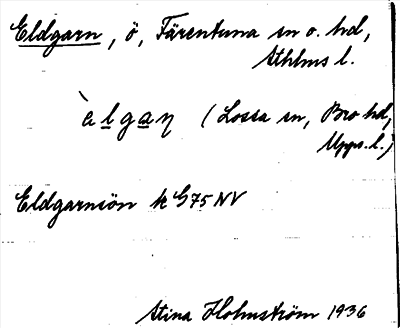 Eldgarn, ö, Färentuna sn o. hd,
Sthlms l.
`ɛlgaŋ (Lossa sn, Bro hd,
Upps. l.)
Eldgarnsön k G75 NV
Stina Holmström 1936